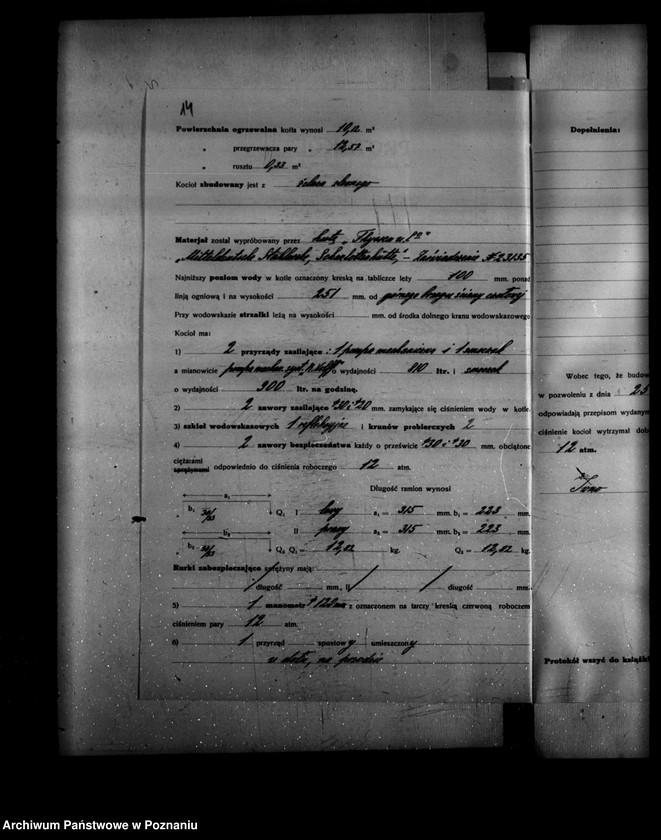 14
Powierzchnia ogrzewalna kotła wynosi 10,12 m²
„ przegrzewacza pary „ 12,57 m²
„ rusztu 0,33 m²
Kocioł zbudowany jest z żelaza zlewnego
Materjał został wypróbowany przez hutę „Thyssen u. Co"
„Mitteldeutsche Stahlwerke, Schaelottenhütte," – Zaświadczenie № 23135
Najniższy poziom wody w kotle oznaczony kreską na tabliczce leży 100 mm. ponad
linją ogniową i na wysokości 251 mm. od górnego brzegu ściany
Przy wodowskazie strzałki leżą na wysokości mm. od środka dolnego kranu wodowskazowego
Kocioł ma:
1) 2 przyrządy zasilające: 1 pompa mechaniczna i 1 smoczek
a mianowicie pompa mechan. syst. o wydajności 810 ltr. i smoczek
o wydajności 900 ltr. na godzinę.
2) 2 zawory zasilające 30 i 20 mm. zamykające się ciśnieniem wody w kotle
3) szkieł wodowskazowych 1 refleksyjne i kranów probierczych 2
4) 2 zawory bezpieczeństwa każdy o prześwicie 30 i 30 mm. obciążone
ciężarami
sprężynami odpowiednio do ciśnienia roboczego 12 atm.
Długość ramion wynosi
a₁
„ b₁ 30/33 Q₁ I lewy a₁ = 315 mm. b₁ = 223 mm.
b₂ II prawy a₂ = 315 mm. b₂ = 223 mm.
„ b₂ 30/33 Q₂ Q₁ = 12,02 kg. Q₂ = 12,02 kg.
Rurki zabezpieczające sprężyny mają:
I długość mm., II długość mm.
5) 1 manometr 120 mm z oznaczonem na tarczy kreską czerwoną roboczem
ciśnieniem pary 12 atm.
6) 1 przyrząd spustowy umieszczony
u dołu, na przodzie
Dopełnienia:
Wobec tego, że budow
w pozwoleniu z dnia 25
odpowiadają przepisom wydanym
ciśnienie kocioł wytrzymał dob
12 atm.
Protokół wszyć do książki
Archiwum Państwowe w Poznaniu